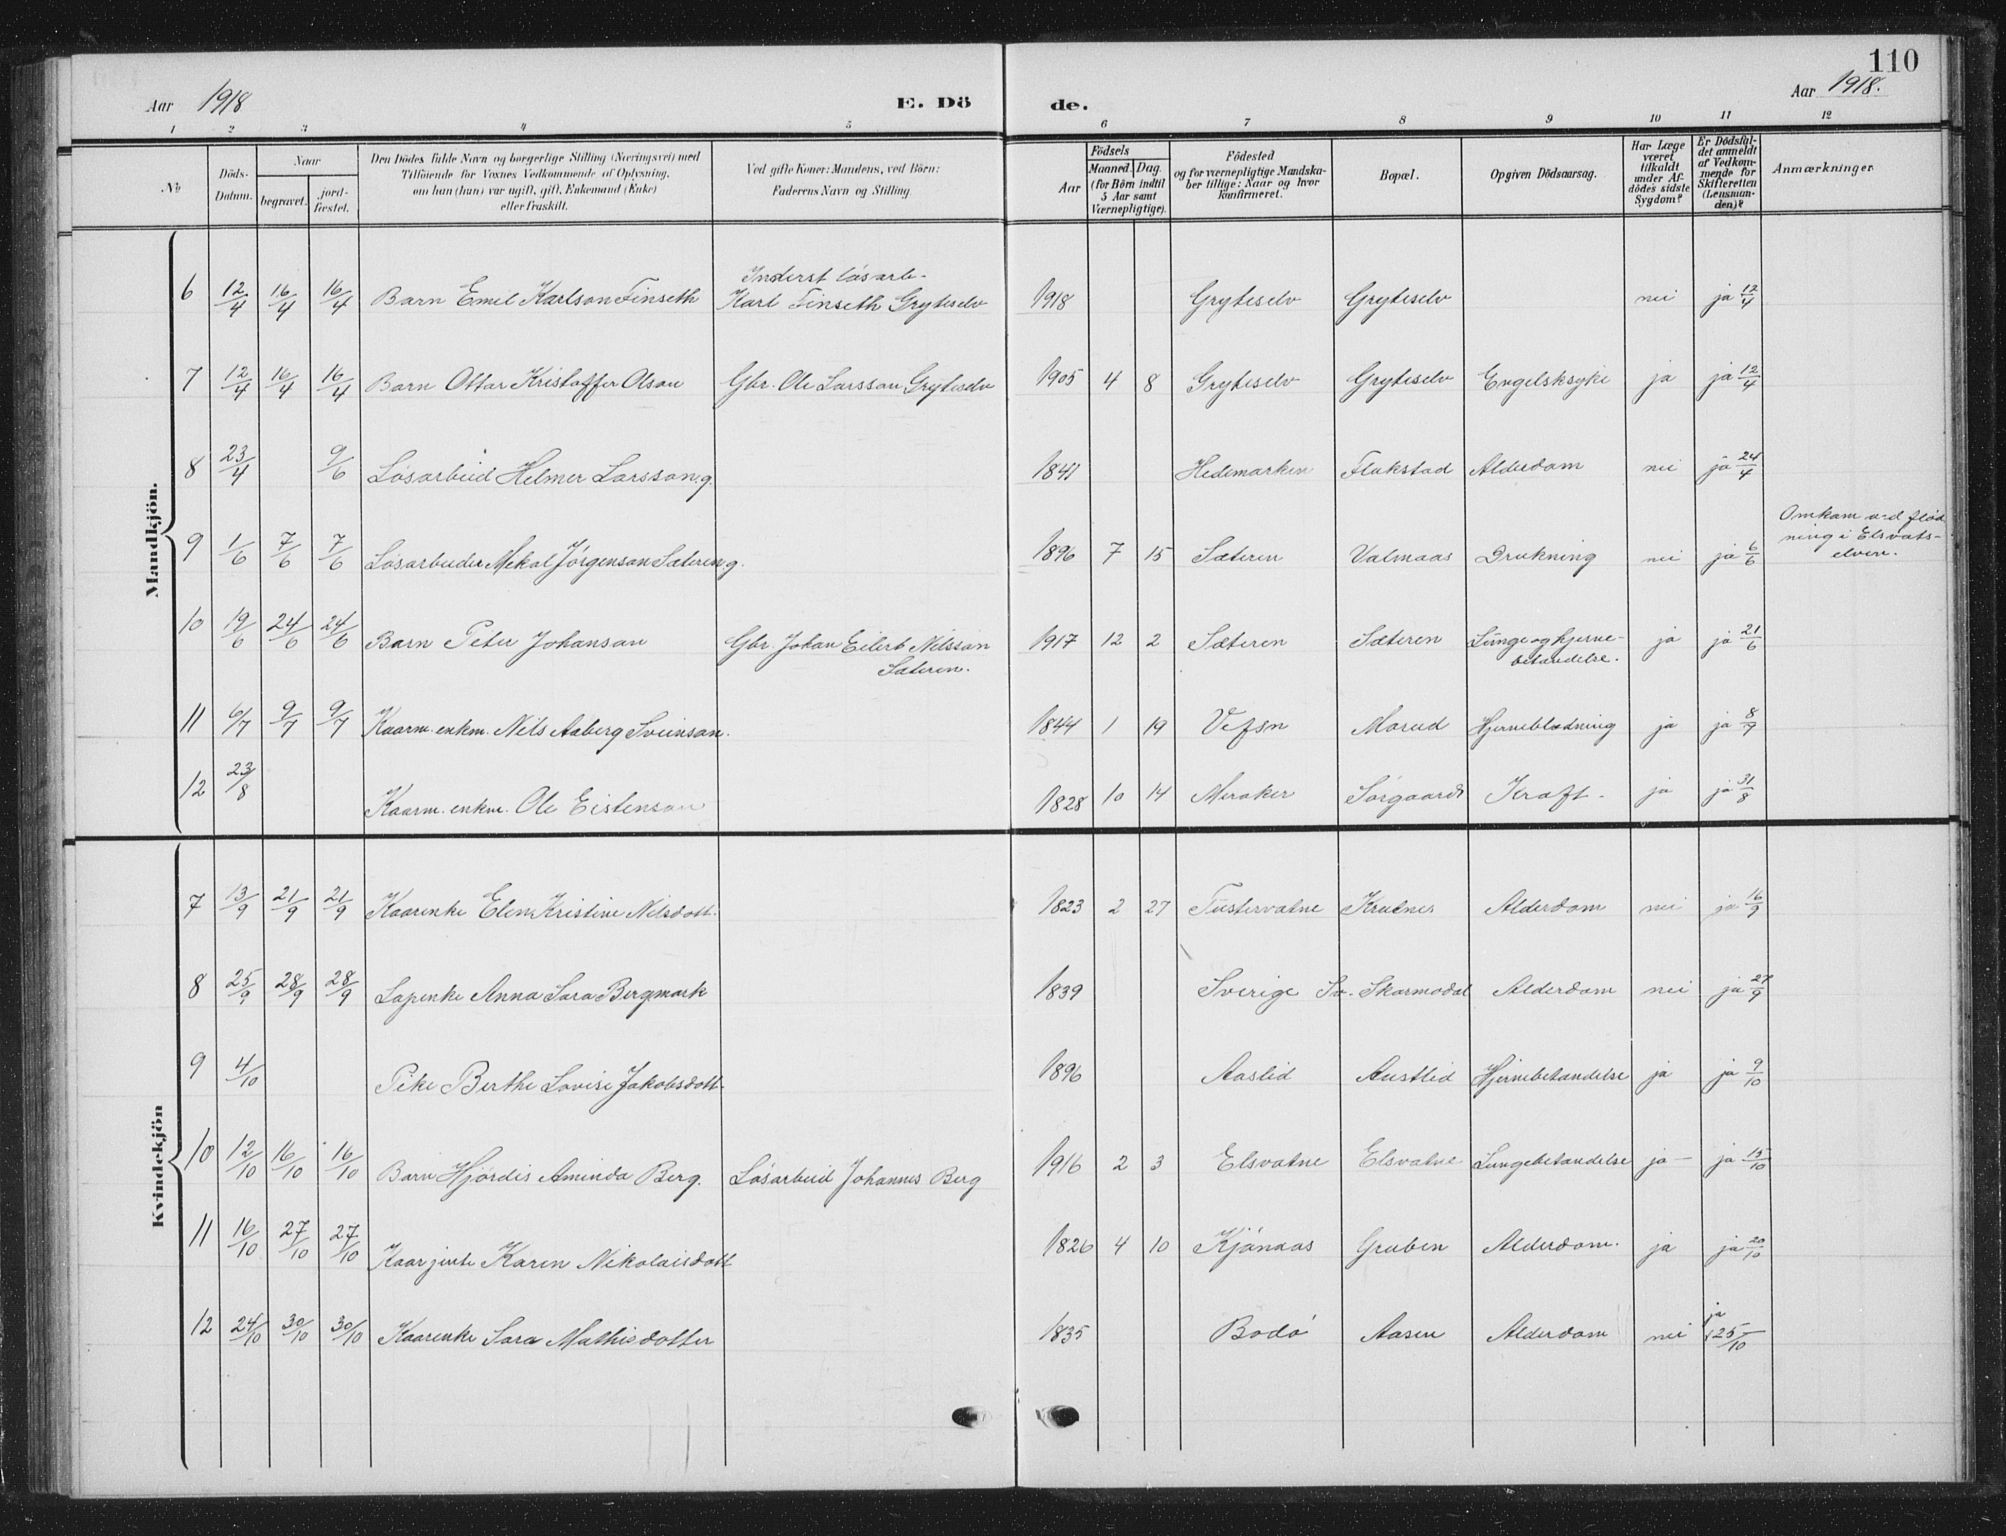 110
Aar 1918
E. Dö
de.
Aar 1918.
1 2 3 4 5 6 7 8 9 10 11 12
No
Döds-
Datum.
Naar
begravet.
jord-
fæstet.
Den Dödes fulde Navn og borgerlige Stilling (Næringsvei) med
Tilföiende for Voxnes Vedkommende af Oplysning,
om han (hun) var ugift, gift, Enkemand (Enke)
eller fraskilt.
Ved gifte Koner: Mandens, ved Börn:
Faderens Navn og Stilling.
Födsels
Aar
Maaned.
Dag.
(for Börn indtil
5 Aar samt
Værnepligtige).
Födested
og for værnepligtige Mandska-
ber tillige: Naar og hvor
konfirmeret.
Bopæl.
Opgiven Dödsaarsag.
Har Læge
været
tilkaldt
under Af-
dödes sidste
Sygdom?
Er Dödsfal-
det anmeldt
af Vedkom-
mende for
Skifteretten
(Lensman-
den)?
Anmærkninger.
Mandkjön.
Inderst løsarb.
6 12/4 16/4 16/4 Barn Emil Karlson Finseth Karl Finseth Grytiselv 1918 Grytiselv Grytiselv nei ja 12/4
7 12/4 16/4 16/4 Barn Ottar Kristoffer Olson Gbr. Ole Larsson Grytiselv 1905 4 8 Grytiselv Grytiselv Engelsksyke ja ja 12/4
8 23/4 9/6 Løsarbeid Helmer Larsson g. 1841 Hedemarken Flakstad Alderdom nei ja 24/4
9 1/6 7/6 7/6 Løsarbeider Mekal Jørgenson Sæteren g. 1896 7 15 Sæteren Valmaas Drukning nei ja 6/6 Omkom ved flød
ning i Elsvats-
elven.
10 19/6 24/6 24/6 Barn Peter Johanson Gbr. Johan Eilert Nilsson
Sæteren. 1917 12 2 Sæteren Sæteren Lunge og hjerne-
betændelse. ja ja 21/6
11 6/7 9/7 9/7 Kaarm. enkm. Nils Aaberg Sveinson. 1844 1 19 Vefsn Morud Hjerneblødning ja ja 8/9
12 23/8 Kaarm. enkm. Ole Eistenson 1828 10 14 Meraker Sørgaard Kræft - ja ja 31/8
Kvindekjön
7 13/9 21/9 21/9 Kaarenke Elen Kristine Nilsdott. 1823 2 27 Tustervatne Krutnes Alderdom nei ja 16/9
8 25/9 28/9 28/9 Lapenke Anna Sara Bergmark 1839 Sverige Sv. Skarmodal Alderdom nei ja 27/9
9 4/10 Pike Berthe Lovise Jakobsdott 1896 Aaslid Austlid Hjernebetændelse ja ja 9/10
10 12/10 16/10 16/10 Barn Hjördis Aminda Berg. Løsarbeid Johannes Berg 1916 2 3 Elsvatne Elsvatne Lungebetændelse ja - ja 15/10
11 16/10 27/10 27/10 Kaarjente Karen Nikolaisdott 1826 4 10 Kjønaas Gruben Alderdom. ja ja 20/10
12 24/10 30/10 30/10 Kaarenke Sara Mathisdotter 1835 Bodø Aasen Alderdom nei ja 25/10